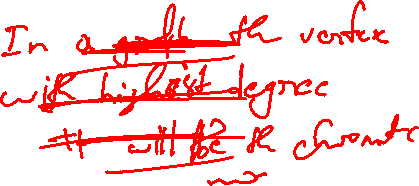 In a graph the vertex
with highest degree
it will be the chromatic
no